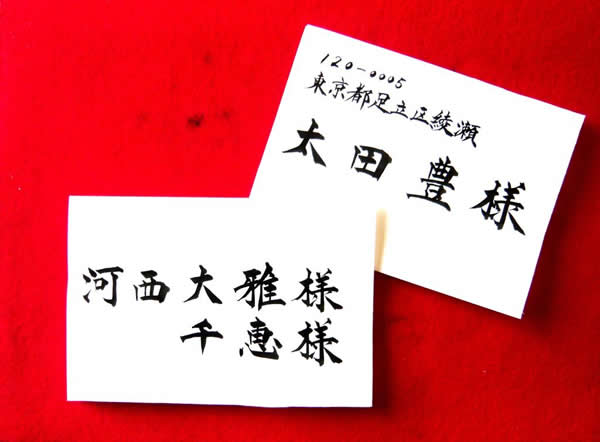 120-0005
東京都足立区綾瀬
太田豊様
河西大雅様
千恵様